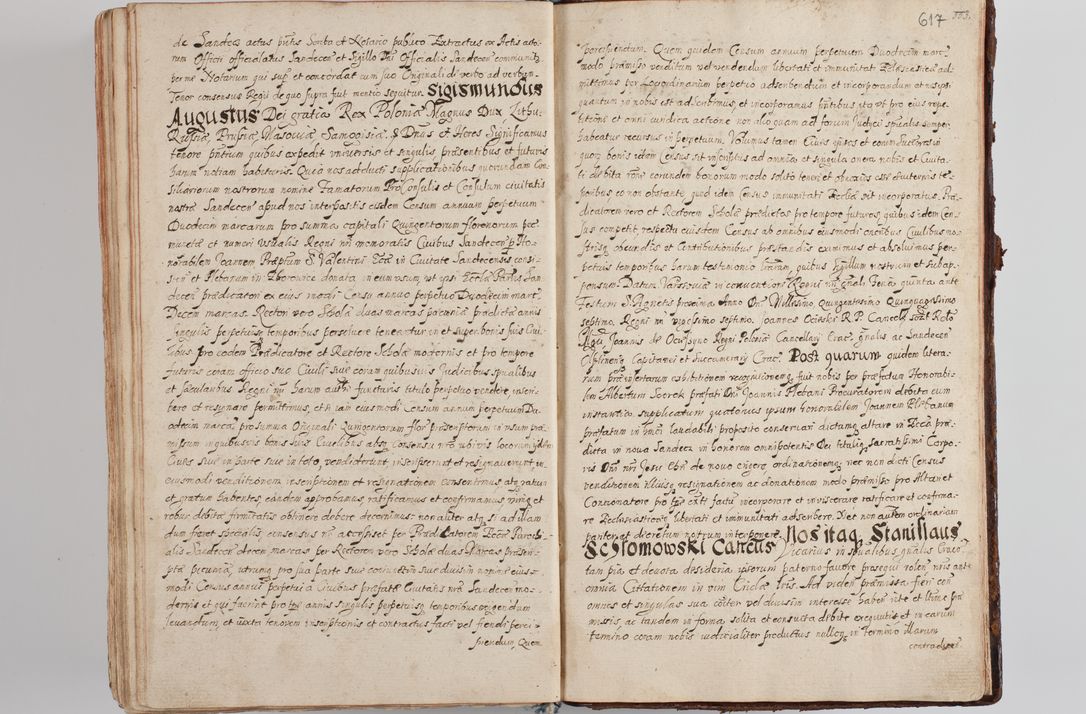 de Sandecz actus pntis Scriba et Notario publico Extractus ex Actis acto-
rum Officii officialatus Sandecen et Sigillo Dni Officialis Sandecen communit
per me Notarium qui supra et concordat cum suo Originali de verbo ad verbum
Tenor consensus Regii de quo supra fuit mentio sequitur. Sigismundus
Augustus Dei gratia Rex Poloniæ Magnus Dux Lithu.
Russiæ, Prussiæ, Masoviæ, Samogitiæ, & Dnus et Heres Significamus
tenore pntium quibus expedit universis et singulis præsentibus et futuris
harum notitiam habituris. Quia nos adducti supplicationibus quorundam Con
siliariorum nostrorum nomine Famatorum Proconsulis et Consulum civitatis
nostræ Sandecen apud nos interpositis eisdem Censum annuum perpetuum
Duodecim marcarum pro summa capitali Quingentorum florenorum pec
muneta et numeri usualis Regni nri memoratis Civibus Sandecen p Ho-
norabilem Joannem Præptum S. Valentini Ecclæ in Civitate Sandecensis consi-
sten et Plebanum in donata in eum usum ut ipsi Ecclæ Parlis San
decen prædicatori ex eius modi Censu annuo perpetuo Duodecim marc
Decem marcas. Rectori vero Scholæ duas marcas pecuniæ prædictæ annis
singulis perpetuisq temporibus persolvere teneantur in et super bonis suis Civi-
libus pro eodem Prædicatore et Rectore Scholæ modernis et pro tempore
futuris coram officio suo Civili sive coram quibusvis Judicibus spualibus
et sæcularibus Regni nri harum autht functuris titulo perpetuo vendere, inscri-
bere et resignare permittimus, et iam eiusmodi Censum annuum perpetuum Du-
odecim marcæ pro summa Originali Quingentorum flor præscriptorum in usum præ-
missum in quibusvis bonis suis Civilibus absq consensu nro ubivis locorum
Cives sive in parte sive in toto, vendiderunt, inscripserunt et resignaverunt, in
eiusmodi venditionem inscriptionem et resignationem consentimus, atq ratum
et gratum habentes, eandem approbamus, ratificamus et confirmamus vimq et
robur debitæ firmitatis obtinere debere decernimus: non aliter atq si ad illam
dum fieret specialis, consensus nr accessisset per Prædicatorem Ecclæ Paroch-
alis Sandecen decem marcas per Rectorem vero Scholæ duas Marcas præscri-
ptæ pecuniæ, utrumq pro sua parte sive coniunctim sive divisim nomine eius-
modi Census annui perpetui a Civibus præfatæ Civitatis nræ Sandecen mo-
dernis et qui fuerint pro tpe annis singulis perpetuisq temporibus exigendum
levandum, et iuxta tenorem inscriptionis et contractus facti vel fiendi perci-
piendum, Quem
617
percipiendum. Quem quidem Censum annuum perpetuum Duodecim marc
modo præmisso venditum vel vendendum libertati et immunitati Ecclesiasticæ ad-
mittimus per Loci ordinarium perpetuo adscribendum et incorporandum et nos ipsi
quantum in nobis est adscribimus et incorporamus pntibus ita ut pro eius repe-
titione et omni iuridica actione non alio quam ad forum Judicii spualis semper
habeatur recursus in perpetuum. Volumus tamen Cives ipsos et eorum successores in
quorum bonis idem Census sit inscriptus ad omnia et singula onera nobis et Civita-
ti debita rone eorundem bonorum modo solito teneri et obnoxios esse æviternis te-
poribus eo non obstante quod idem Census immunitati Ecclæ sit incorporatus. Præ-
dicatorem vero et Rectorem Scholæ prædictos pro tempore futuros, quibus idem Cen-
sus competit respectu eiusdem Census ab omnibus eiusmodi oneribus Civilibus no-
strisq obeundis et Contributionibus præstandis eximimus et absolvimus per-
petuis temporibus harum testimonio lrarum, quibus Sigillum nostrum est subap-
pensum. Datum Varsoviæ in conventione Regni nri gnali Feria quinta ante
Festum S. Agnetis proxima Anno Dni Millesimo, quingentesimo Quinquagesimo
septimo, Regni nri vigesimo septimo. Joannes Ocieski R. P. Cancell. sszt Relo
Mgci, Joannis de Ocieszyno Regni Poloniæ Cancellarii Crac. gnalis ac Sandecen
Olstinenq Capitanei et Succamerarii Crac. Post quarum quidem litera-
rum præinsertarum exhibitionem recognitionemq, fuit nobis per præfatum Honorabi-
lem Albertum Soerek præfati Dni Joannis Plebani Procuratorem debita cum
instantia supplicatum quatenus ipsum honorabilem Joannem Plebanum
præfatum in hmoi laudabili proposito conservari dictumq altare in Ecclæ præ-
dicta in nova Sandecz in honorem omnipotentis Dei tituliq Sacratissimi Corpo-
ris Dni nri Jesu Chri de novo erigere, ordinationemq nec non dicti Census
venditionem illiusq resignationem ac donationem modo præmisso pro Altari et
Concionatore pro tpe exnti factam incorporare et inviscerare ratificare et confirma-
re Ecclesiasticæq libertati et immunitati adscribere. Nec non autem ordinariam
pariter et decretum notrum interponere. Nos itaq Stanislaus
Schlomowski Cantcus Vicarius in spualibus gnalis Craco.
tam pia et devota desideria ipsorum paterno favore prosequi volen nris ante
omnia Citationem in vim Cridæ lris Ad viden præmissa fieri cen
omnes et singulas sua coiter vel divisim interesse haben rite et ltime præ
missis, ac tandem in forma solita et consueta debite exequutis et in earum
termino coram nobis iudicialiter productus nullusq in termino illarum
contradixer